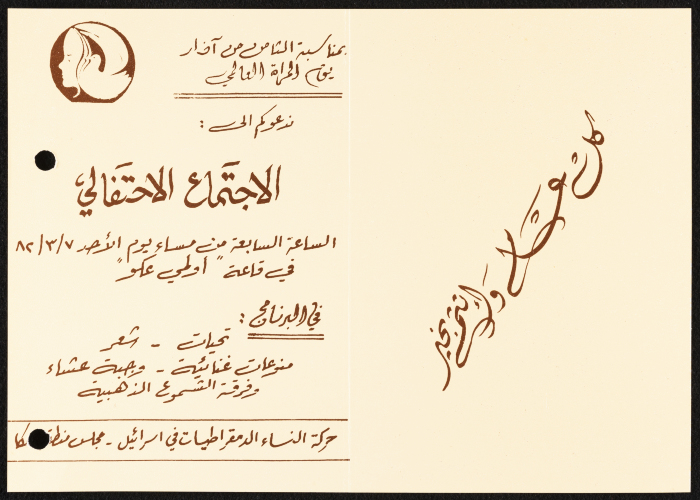 بمناسبة الثامن من آذار
يوم المرأة العالمي
ندعوكم الى :
الاجتماع الاحتفالي
الساعة السابعة من مساء يوم الأحد ٨٢/٣/٧
في قاعة " اولمبي عكو"
في البرنامج :
تحيات - شعر
منوعات غنائية - وجبة عشاء
وفرقة الشموع الذهبية
حركة النساء الدمقراطيات في اسرائيل - مجلس منطقة
كل عام وانتم بخير